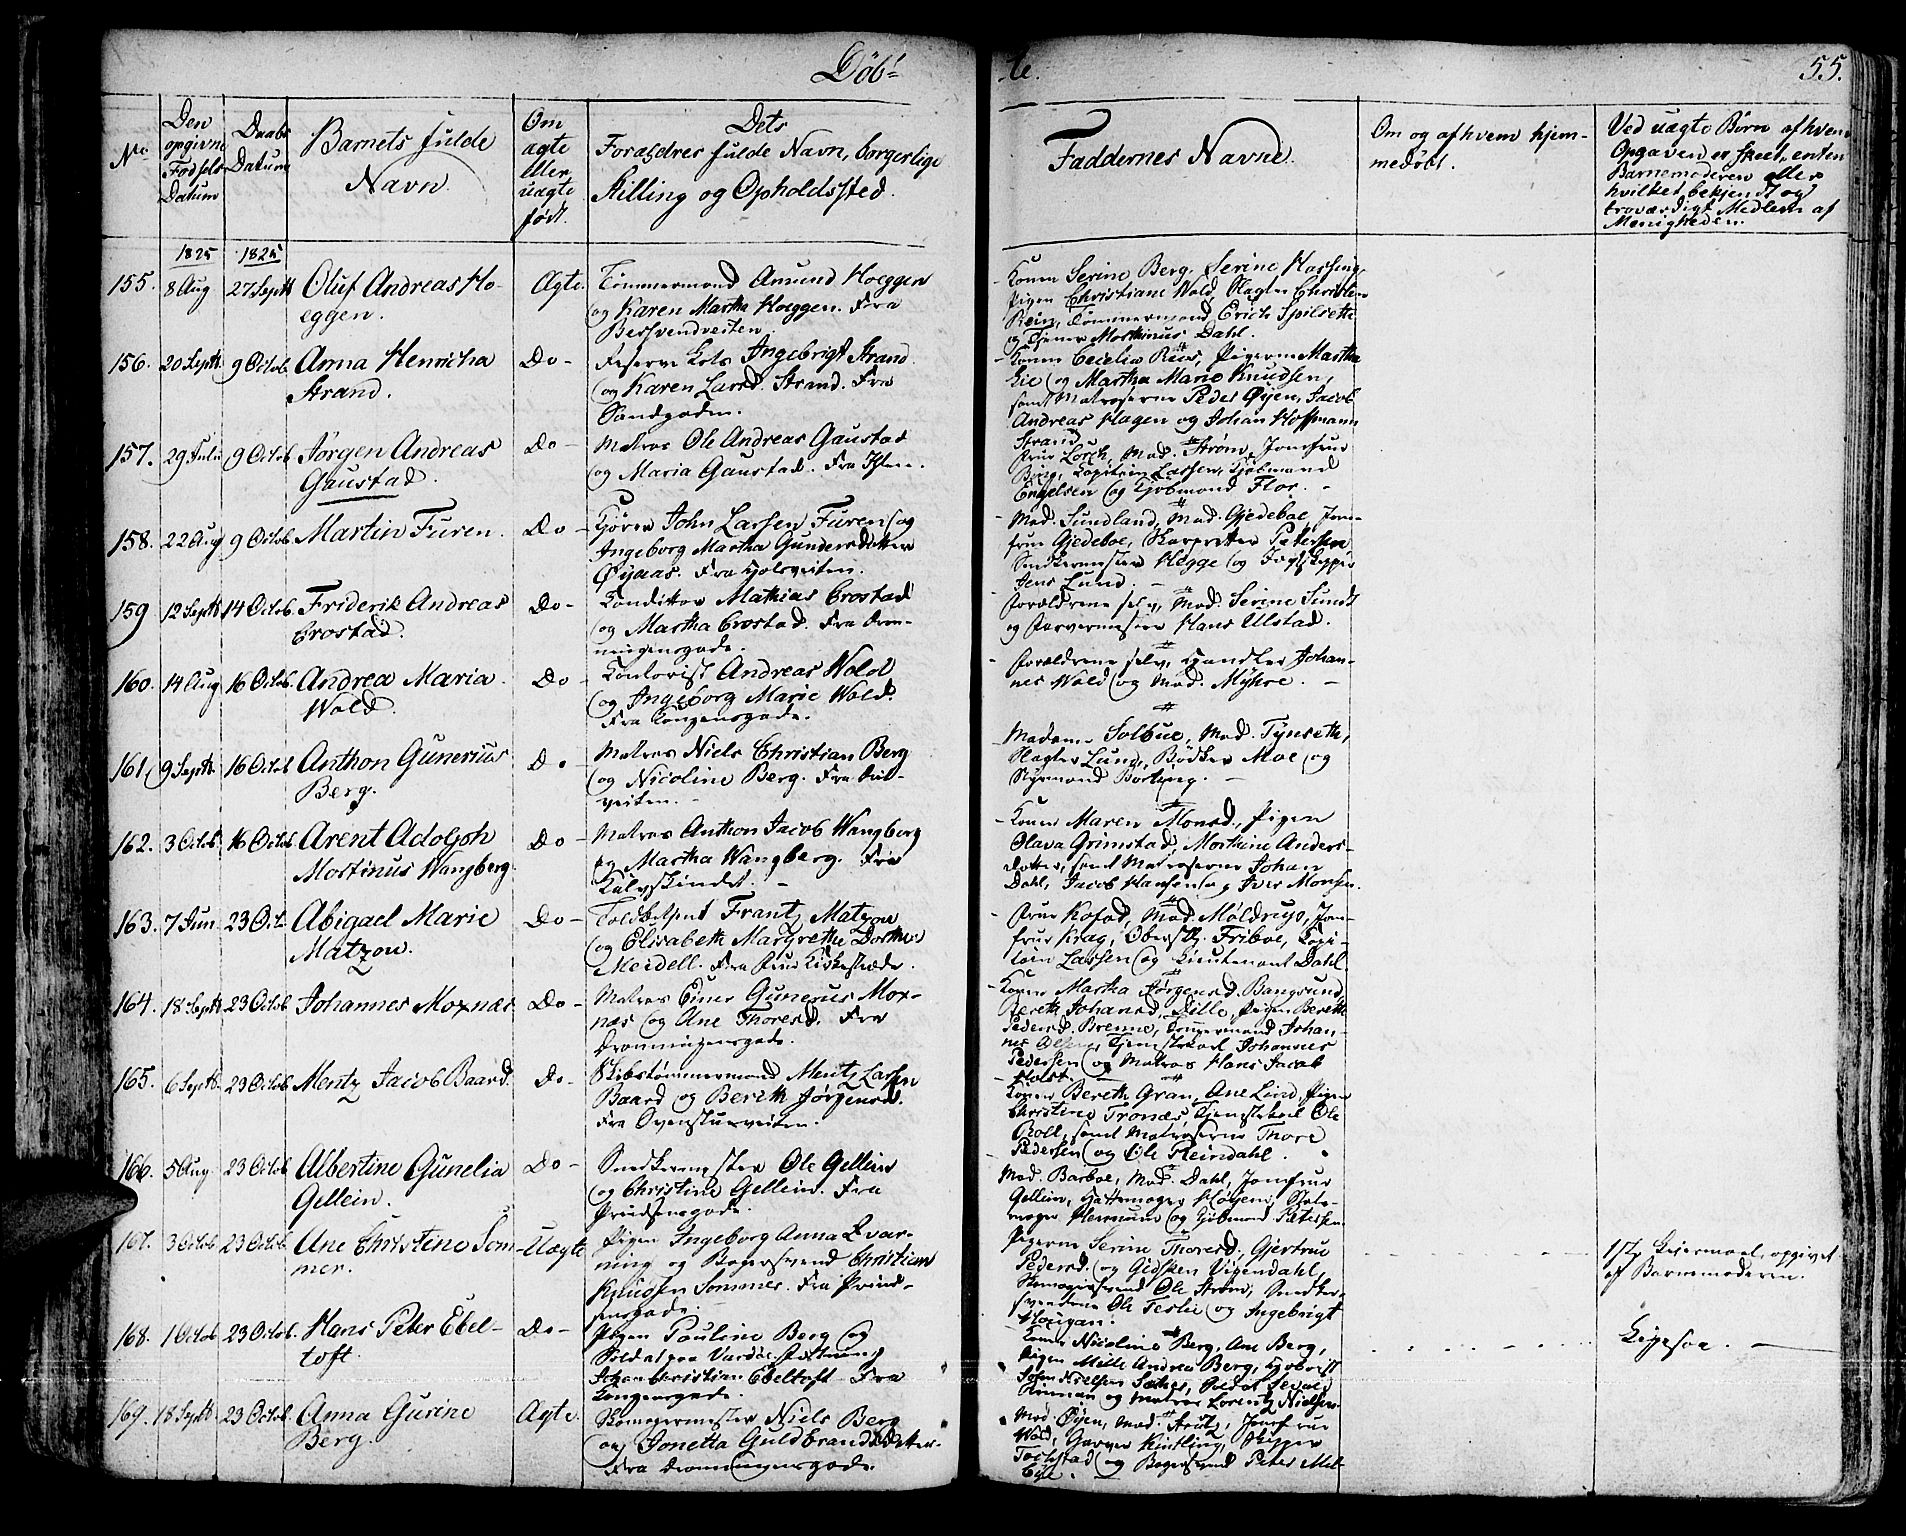 Døb-
te.
55.
No.
Den
opgivne
Fødsels
Datum
Daabs
Datum
Barnets fulde
Navn.
Om
ægte
eller
uægte
født.
Dets
Forældres fulde Navn, borgerlige
Stilling og Opholdssted.
Faddernes Navne.
Om og af hvem hjem-
medøbt.
Ved uægte Børn af hvem
Opgaven er skeet, enten
Barnemoderen eller
hvilket bekjendt og
troværdigt Medlem af
Menigheden.
1825
1825
155. 8 Aug 27 Septb Oluf Andreas Ho-
eggen.
Ægte.
Tømmermand Amund Hoeggen
og Karen Martha Hoeggen. Fra
Konen Serine Berg, Serine Hassing,
Pigen Christiane Wold, Slagter Christen
Rein, Tømmermand Erich Spilsets
og Tjener Morthinus Dahl.
156. 20 Septb. 9 Octob. Anna Henricha
Strand.
Do-
Ingebrigt Strand
og Karen Larsd. Strand. Fra
Sandgaden.
Konen Cecelia Riis, Pigerne Martha
Lie og Martha Marie Knudsen,
samt Matroserne Peder Øyen, Jacob
Andreas Hagen og Johan Hoffmann
Strand
157. 29 Juli 9 Octob. Jørgen Andreas
Gaustad.
Do-
Matros Ole Andreas Gaustad
og Maria Gaustad. Fra Ihlen.
Frue Lorch, Mad. Strøm, Jomfrue
Bing, Capitain Lassen, Kjøbmand
Engelsen og Kjøbmand Flor.
158. 22 Aug 9 Octob. Martin Furen.
Do-
Kjører John Larsen Furen og
Ingeborg Martha Gundersdotter
Øyaas. Fra
Mad. Sundland, Mad. Gjedeboe, Jom-
frue Gjedeboe, Skarpretter Petersen
Snedkermester Hegge og
Jens Lund.
159. 12 Septb 14 Octob. Friderik Andreas
Crostad.
Do-
Konditter Mathias Crostad
og Martha Crostad. Fra Dron-
ningensgade.
Forældrene selv, Mad. Serine Sundt
og Farvermester Hans Ulstad.
160. 14 Aug 16 Octob. Andrea Maria
Wold.
Do-
Contorist Andreas Wold
og Ingeborg Marie Wold.
Fra Kongensgade.
Forældrene selv, Handler Johan-
nes Wold og Mad. Myhre.
161. 9 Septb. 16 Octob Anthon Gunerius
Berg.
Do-
Matros Niels Christian Berg
og Nicoline Berg. Fra
veiten.
Madame Solbue, Mad. Tynseth,
Slagter Lund, Bødker Moe og
Styrmand Borting.
162. 3 Octob. 16 Octob. Arent Adolph
Mortinus Wangberg.
Do-
Matros Anthon Jacob Wangberg
og Martha Wangberg. Fra
Kalvskindet.
Konen Maren Monsd., Pigen
Olava Grimstad, Morthine Anders-
dotter, samt Matroserne Johan
Dahl, Jacob Hansen og Iver Monsen.
163. 7 Jun. 23 Oct. Abigael Marie
Matzow.
Do-
Toldbetjent Frantz Matzow
og Elisabeth Margrethe Dorthea
Meidell. Fra Frue Kirkestræde.
Frue Kofod, Mad. Møldrup, Jom-
frue Krag, Oberstlt. Friboe, Capi-
tain Lassen og Lieutenant Dahl.
164. 18 Septb 23 Octob. Johannes Moxnæs
Do-
Matros Einer Gunerus Mox-
næs og Ane Thoresd. Fra
Dronningensgade.
Konen Martha Jørgensd. Bangsund
Bereth Johansd. Dille, Pigen Bereth
Pedersd. Brenne, Johan-
nes Olsen, Tjenstekarl Johannes
Pedersen og Matros Hans Jacob
Holst.
165. 6 Septb. 23 Octob. Mentz Jacob Baard.
Do-
Skibstømmermand Mentz Larsen
Baard og Bereth Jørgensd.
Fra
Konen Bereth Gran, Ane Lind, Pigen
Christine Tronæs, Tjenstekarl Ole
Roll, samt Matroserne Thore
Pedersen og Ole Reindahl.
166. 5 Aug. 23 Octob. Albertine Gunelia
Gellein.
Do-
Snedkermester Ole Gellein
og Christine Gellein. Fra
Prindsensgade.
Mad. Barboe, Mad. Dahl, Jomfrue
Gellein, Hattemager Høyem,
mager og Kjøbmand Petersen.
167. 3 Octob. 23 Octob. Ane Christine Som-
mer.
Uægte
Pigen Ingeborg Anna
ning og Bagersvend Christian
Knudsen Sommer. Fra Prind-
sensgade.
Pigerne Serine Thoresd., Gjertrue
Pedersd. og Gidsken Vigendahl,
Skomagersvend Ole Strøm, Snedker-
svendene Ole Teslie og Ingebrigt
1ste Leiermaal, opgivet
af Barnemoderen.
168. 1 Octob 23 Octob. Hans Peter Ebel-
toft.
Do-
Pigen Pauline Berg og
Soldat paa Vardøe Fæstning
Johan Christian Ebeltoft. Fra
Kongensgade.
Konen Nicoline Berg, Ane Berg,
Pigen Mille Andrea Berg,
John Nielsen
og Matros Lorentz Nielsen.
Ligesaa.
169. 18 Septb. 23 Octob. Anna Gurine
Berg.
Ægte.
Skomagermester Niels Berg
og Jonetta Guldbrandsdotter.
Fra Dronningensgade.
Mad. Øyen, Mad. Jomfrue
Wold, Garver Kintling, Skipper
og Bagersvend Peter